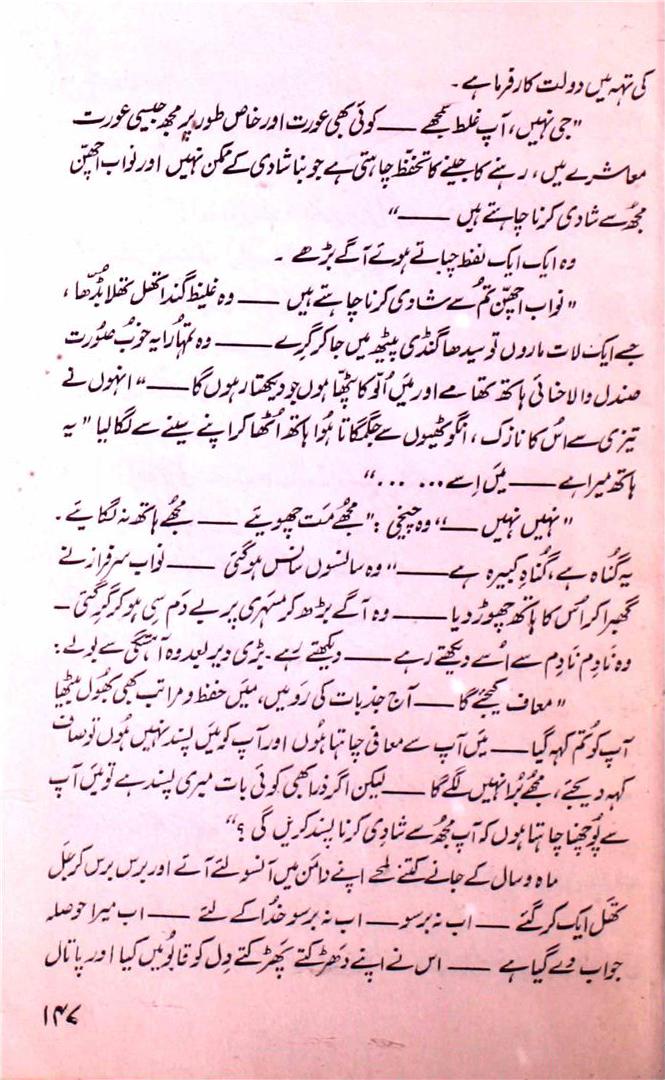 کی تہہ میں دولت کار فرما ہے۔
"جی نہیں، آپ غلط سمجھے —— کوئی بھی عورت اور خاص طور پر مجھ جیسی عورت
معاشرے میں، رہنے کا جینے کا تحفّظ چاہتی ہے جو بنا شادی کے ممکن نہیں اور نواب اچھّن
مجھ سے شادی کرنا چاہتے ہیں ——"
وہ ایک ایک لفظ چباتے ہوئے آگے بڑھے۔
"نواب اچھّن تم سے شادی کرنا چاہتے ہیں —— وہ غلیظ گندا تھل تھلا بڈّھا،
جسے ایک لات ماروں تو سیدھا گنڈی پیٹھ میں جا کر گرے —— وہ تمہارا یہ خوبصورت
صندل والا حنائی ہاتھ تھامے اور میں اُلّو کا پٹھا ہوں جو دیکھتا رہوں گا ——" انہوں نے
تیزی سے اُس کا نازک، انگوٹھیوں سے جگمگاتا ہُوا ہاتھ اُٹھا کر اپنے سینے سے لگا لیا "یہ
ہاتھ میرا ہے —— میں اِسے . . . . . ."
"نہیں نہیں ——" وہ چیخی: "مجھے مَت چھویئے —— مجھے ہاتھ نہ لگایئے۔
یہ گُناہ ہے، گُناہِ کبیرہ ہے ——" وہ سانسوں سانس ہوگئی —— نواب سرفراز نے
گھبرا کر اُس کا ہاتھ چھوڑ دیا —— وہ آگے بڑھ کر مسہری پر بے دَم سی ہو کر گر گئی —
وہ نادِم نادِم سے اُسے دیکھتے رہے —— دیکھتے رہے۔ بڑی دیر بعد وہ آہستگی سے بولے:
"معاف کیجئے گا —— آج جذبات کی رَو میں، میں حفظ و مراتب بھی بُھول بیٹھا
آپ کو تُم کہہ گیا —— میں آپ سے معافی چاہتا ہُوں اور آپ کو میں پسند نہیں ہُوں تو صاف
کہہ دیجئے، مجھے بُرا نہیں لگے گا —— لیکن اگر ذرا بھی کوئی بات میری پسند ہے تو میں آپ
سے پُوچھنا چاہتا ہوں کہ آپ مجھ سے شادی کرنا پسند کریں گی؟"
ماہ و سال کے جانے کتنے لمحے اپنے دامن میں آنسو لئے آئے اور برس برس کر جَل
تَھل ایک کر گئے —— اب نہ برسو —— اب نہ برسو خدا کے لئے —— اب میرا حوصلہ
جواب دے گیا ہے —— اس نے اپنے دَھڑکتے پَھڑکتے دِل کو قابُو میں کیا اور پاتال
۱۴۷